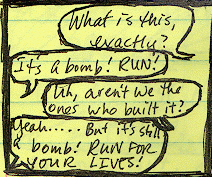 What is this,
exactly?
It's a bomb! RUN!
Uh, aren't we the
ones who built it?
Yeah..... But it's still
a bomb! RUN FOR
YOUR LIVES!